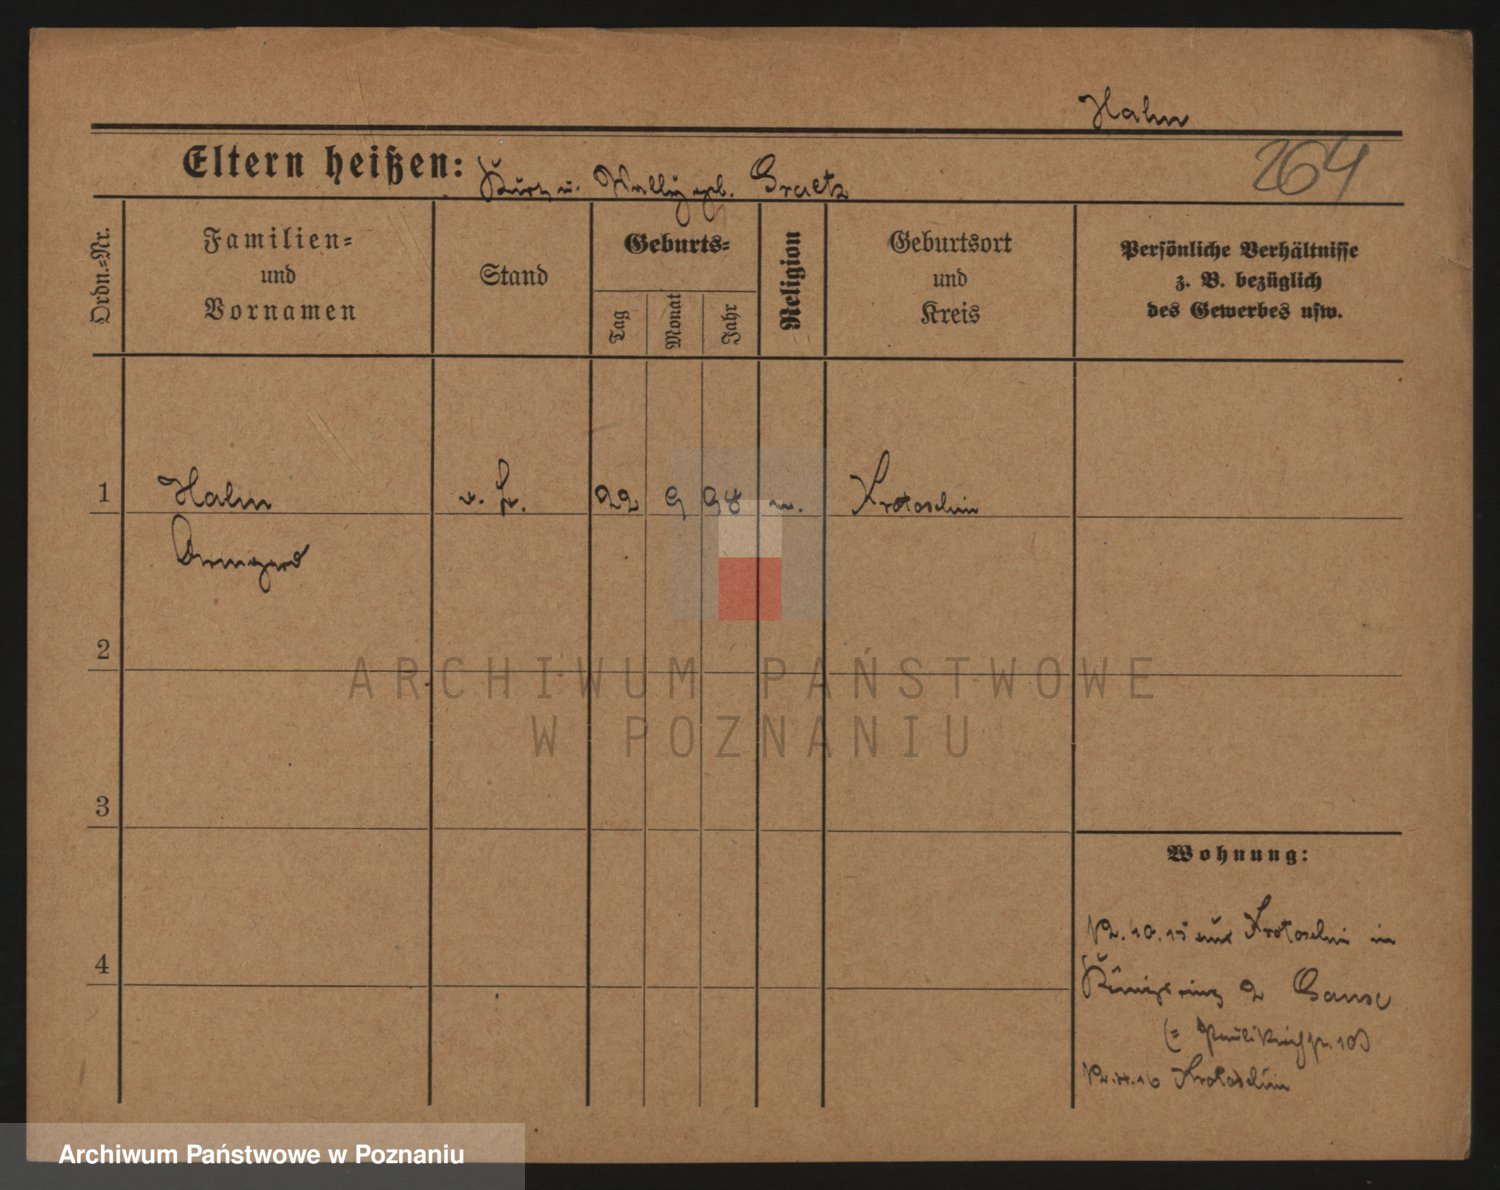 Hahn
264
Eltern heißen: Kurz u. Wally geb. Graetz
Ordn.-Nr.
Familien-
und
Vornamen
Stand
Geburts-
Tag
Monat
Jahr
Religion
Geburtsort
und
Kreis
Persönliche Verhältnisse
z. B. bezüglich
des Gewerbes usw.
1 Hahn 22 9 98 Krotoschin
Armgard
2
ARCHIWUM PAŃSTWOWE
W POZNANIU
3
4
Wohnung:
10.15 aus Krotoschin in
Königsring 2
(= Paulikirchstr. 10)
Krotoschin
Archiwum Państwowe w Poznaniu